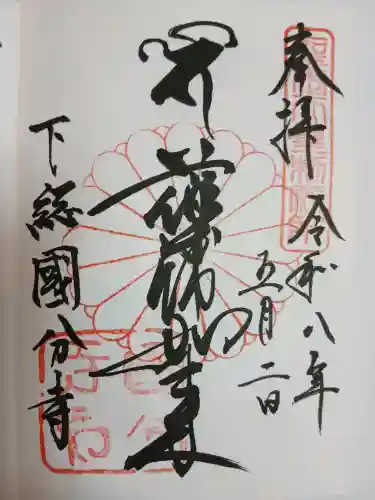 奉拝
令和八年
五月二日
薬師如来
下総國分寺